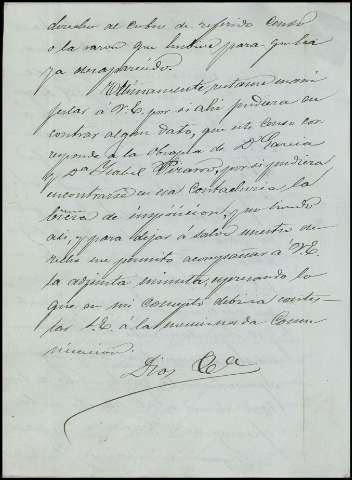 derecho al cobro de referido Censo
o la razon que hubiere para que haya
ya desaparecido.
Ultimamente, restame mani
festar á V.E. por si ahi pudiera en
contrar algun dato, que este censo cor
responde á la Obrapia de Dn Garcia
y Da Isabel Pizarro, por si pudiera
encontrarse en esa Contaduria, la
de imposicion, y no siendo
asi, y para dejar á salvo nuestro de
recho me permito acompañar á V.E.
la adjunta minuta, expresando lo
que en mi concepto debiera contes
tar V.E. á la mencionada Comu
nicacion.
Dios &a